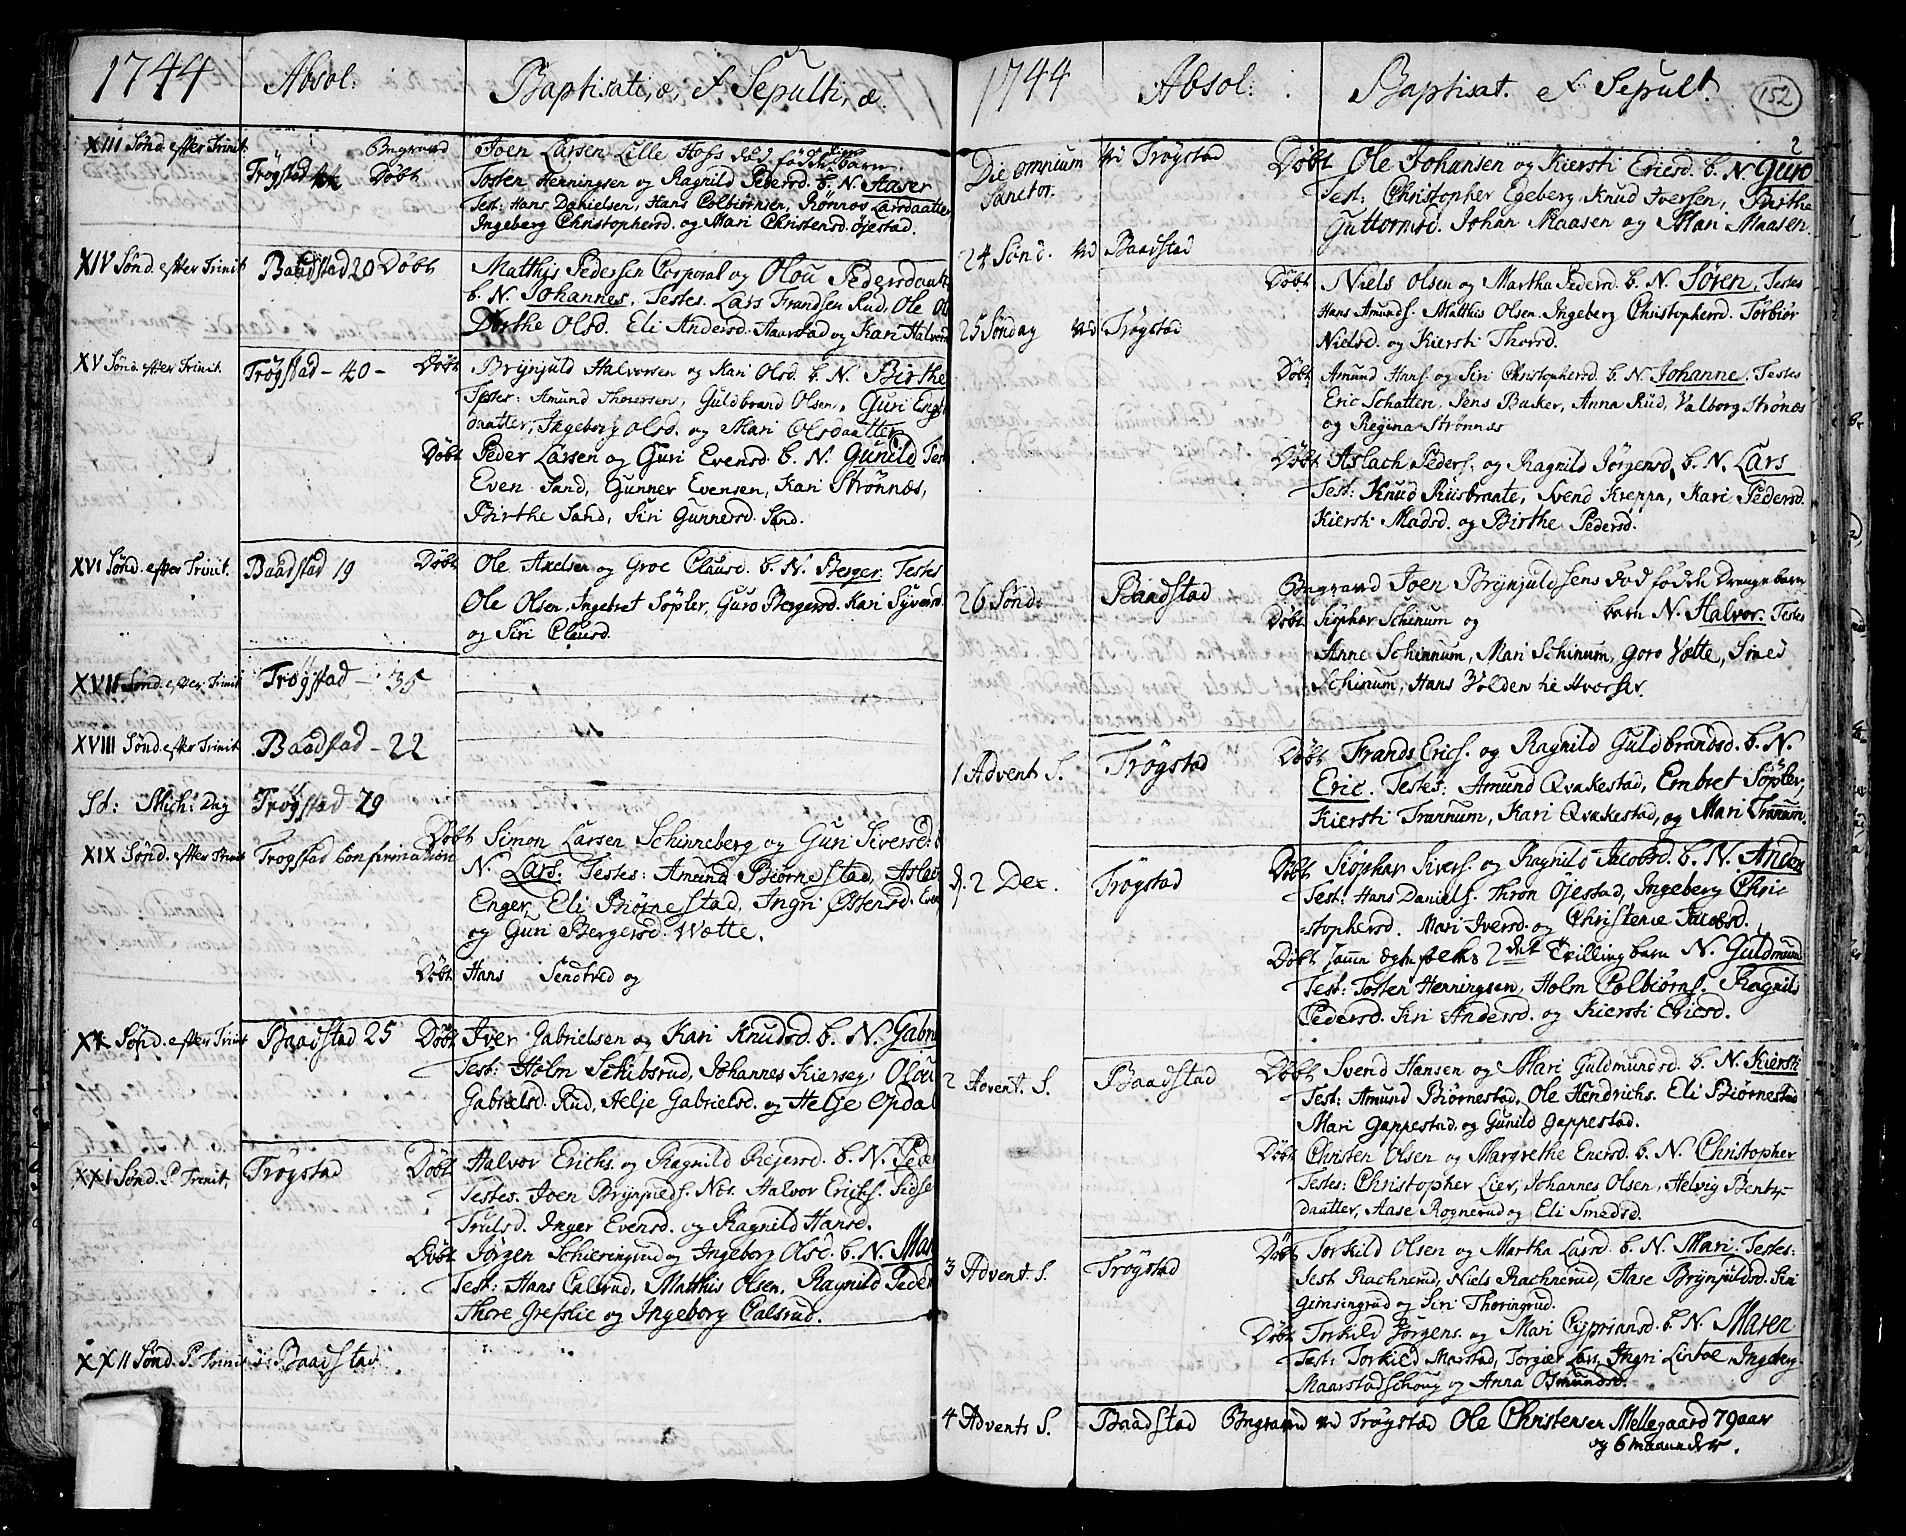 1744 Absol: Baptisati, æ, & Sepulti, æ.
XIII Sønd. efter Trinit. Trøgstad Begraved Joen Larsen Lille Hofs død fødde barn.
Døbt Tosten Henningsen og Ragnild Pedersd. b. N. Aaser
Test: Hans Danielsen, Hans Colbiørnsen, Rønnov Larsdaatter
Ingeberg Christophersd. og Mari Christensd. Øjestad.
XIV Sønd. efter Trinit Baadstad 20 Døbt Matthis Pedersen Corporal og Olou Pedersdaatt
b. N. Johannes. Testes. Lars Frandsen Rud, Ole
Dorthe Olsd. Eli Andersd. Haarstad og Kari Halvors
XV Sønd. efter Trinit. Trøgstad - 40 - Døbt Brÿnjuld Halvorsen og Kari Olsd. b. N. Birthe
Testes: Amund Thorersen, Guldbrand Olsen, Guri
daatter, Ingeborg Olsd. og Mari Olsdaatter
Døbt Peder Larsen og Guri Evensd. b. N. Gunild Test
Even Sand, Gunner Evensen, Kari Strønnæs,
Birthe Sand, Siri Gunnersd. Sand.
XVI Sønd. efter Trinit. Baadstad 19 Døbt Ole Axelsen og Groe Clausd. b. N. Berger Testes
Ole Olsen, Ingebret Søpler, Guro Bergersd. Kari Syversd
og Siri Clausd.
XVII Sønd. efter Trinit Trøgstad - 35
XVIII Sønd. efter Trinit Baadstad - 22
St: Mich: Dag Trøgstad 29
XIX Sønd. efter Trinit Trøgstad Confirmation Døbt Simon Larsen Schinneberg og Guri Siversd:
N. Lars. Testes: Amund Biørnestad, Aslac
Enger, Eli Biørnestad, Ingri Østensd.
og Guri Bergersd. Wætte.
Døbt Hans Sendtved og
XX Sønd. efter Trinit Baadstad 25 Døbt Iver Gabrielsen og Kari Knudsd. b. N. Gabri
Test: Holm Schibsrud, Johannes Kierseg, Olou
Gabrielsd. Rud, Helje Gabrielsd. og Helje Opdal
XXI Sønd. P. Trinit, Trøgstad Døbt Halvor Erichs. og Ragnild Rejersd. b. N. Peder
Testes. Joen Brÿnjuldsen Nos. Halvor Erichs. Sidse
Trulsd. Inger Evensd. og Ragnild Hansd.
Døbt Jørgen Schieringrud og Ingeborg Olsd. b. N. Mar
Test: Hans Calsrud, Matthis Olsen, Ragnild Peder
Thore Grefslie og Ingeborg Calsrud.
XXII Sønd. P. Trinit Baadstad
1744 Absol: Baptisat. & Sepult. 152
2
Die omnium Sanctor. Trøgstad Døbt Ole Johansen og Kiersti Ericsd. b. N. Guro
Test: Christopher Egeberg, Knud Iversen, Birthe
Guttormsd. Johan Maasen og Mari Maasen.
24 Sønd. Baadstad
Døbt Niels Olsen og Martha Pedersd. b. N. Søren. Testes
Hans Amunds. Matthis Olsen. Ingeberg Christophersd. Torbiør
Nielsd. og Kiersti Thorsd.
25 Søndag Trøgstad
Døbt Amund Hans. og Siri Christophersd. b. N. Johanne. Testes
Eric Schatten, Jens Backer, Anna Rud, Valborg Strønæs
og Regina Strønnæs
Døbt Aslach Peders. og Ragnild Jørgensd. b. N. Lars
Test: Knud Riisbraate, Svend Kreppa, Kari Pedersd.
Kiersti Madsd. og Birthe Pedersd.
26 Sønd: Baadstad Begraved Joen Brÿnjuldsens død fødde Drenge barn
Døbt Siøphar Schinum og barn N. Halvor. Testes
Anne Schinnum, Mari Schinum, Goro Vætte, Simen
Schinum, Hans Volden
1 Advent S. Trøgstad Døbt Frands Erics. og Ragnild Guldbrandsd. b. N.
Eric. Testes: Amund Qvakestad, Embret Søpler,
Kiersti Trannum, Kari Qvakestad, og Mari Trannum.
d. 2 Dec. Trøgstad Døbt Siøphar Sivers. og Ragnild Jacobsd. b. N. Anders
Test: Hans Daniels. Thron Øjestad, Ingeberg Chri
stophersd. Mari Iversd. og Christence Jacobsd.
Døbt samme 2det Tvilling barn N. Guldmund
Test: Tosten Henningsen, Holm Colbiørns. Ragnild
Pedersd. Siri Andersd. og Kiersti Ericsd.
2 Advent. S. Baadstad Døbt Svend Hansen og Mari Guldmundsd b. N. Kiersti
Test: Amund Biørnestad, Ole Hendrichs. Eli Biørnestad
Mari Gappestad, og Gunild Gappestad.
Døbt Christen Olsen og Margrethe Enersd. b. N. Christopher
Testes: Christopher Lier, Johannes Olsen, Helvig Bent
daatter, Aase Rognerud og Eli Smedsd.
3 Advent. S. Trøgstad Døbt Torkild Olsen og Martha Larsd. b. N. Mari. Testes:
Test Rachnerud, Niels Rachnerud, Aase Brÿnjuldsd. Siri
Gimsingrud og Siri Thoringrud.
Døbt Torkild Jørgens. og Mari Cypriansd. b. N. Maren
Test: Torkild Marstad, Torgier Lars, Ingri Lintoe, Ingeberg
Maarstadschoug og Anna Osmundsd.
4 Advents S. Baadstad Begraved Trøgstad Ole Christensen Mellegaard 79 aar
og 6 maaneder.